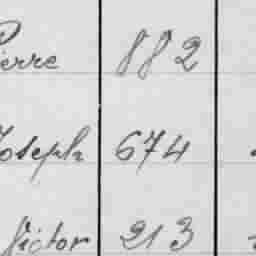 Pierre 882
Joseph 674
Victor 213